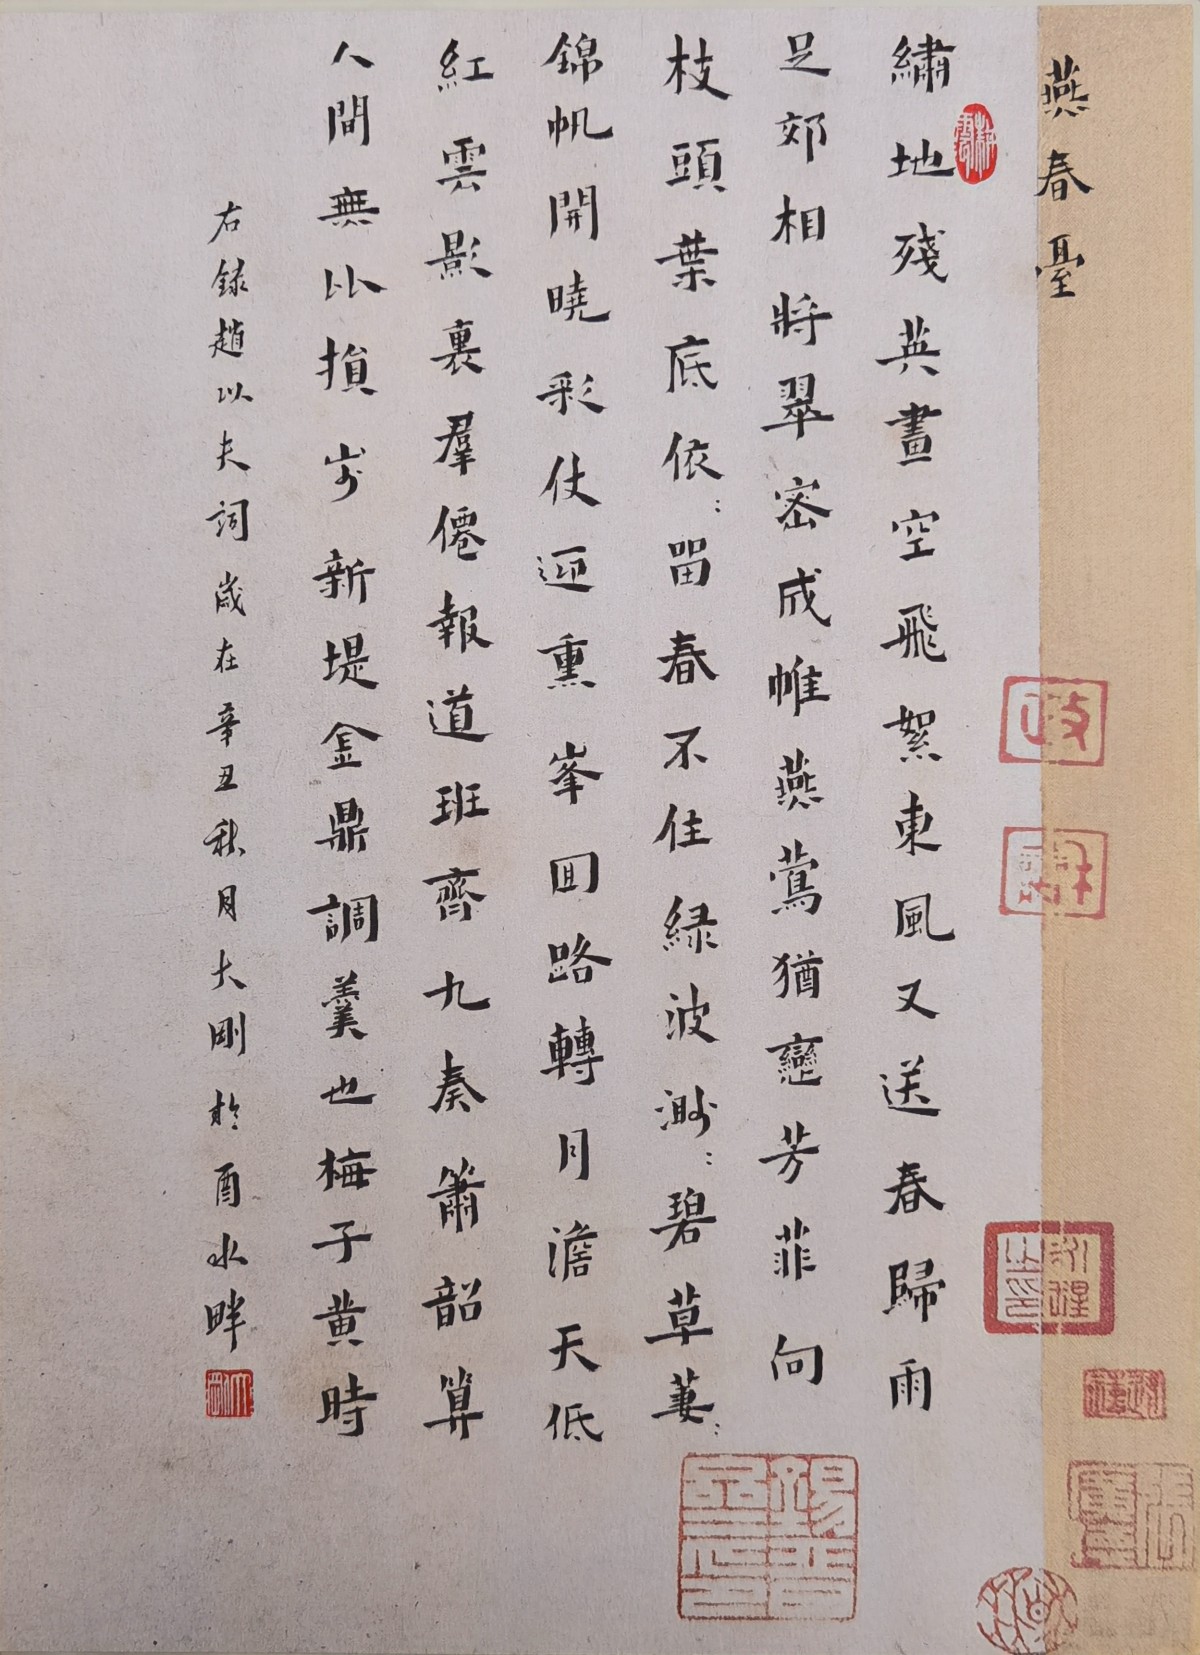 燕春臺
繡地殘英畫空飛絮東風又送春歸雨
足郊相將翠密成帷燕鶯猶戀芳菲向
枝頭葉底依：畱春不住緑波渺：碧草萋：
錦帆開曉彩仗迎熏峯囬路轉月澹天低
紅雲影裏羣僊報道班齊九奏簫韶算
人間無比損步新堤金鼎調羹也梅子黄時
右録趙以夫詞歲在辛丑秋月大剛於酉水畔